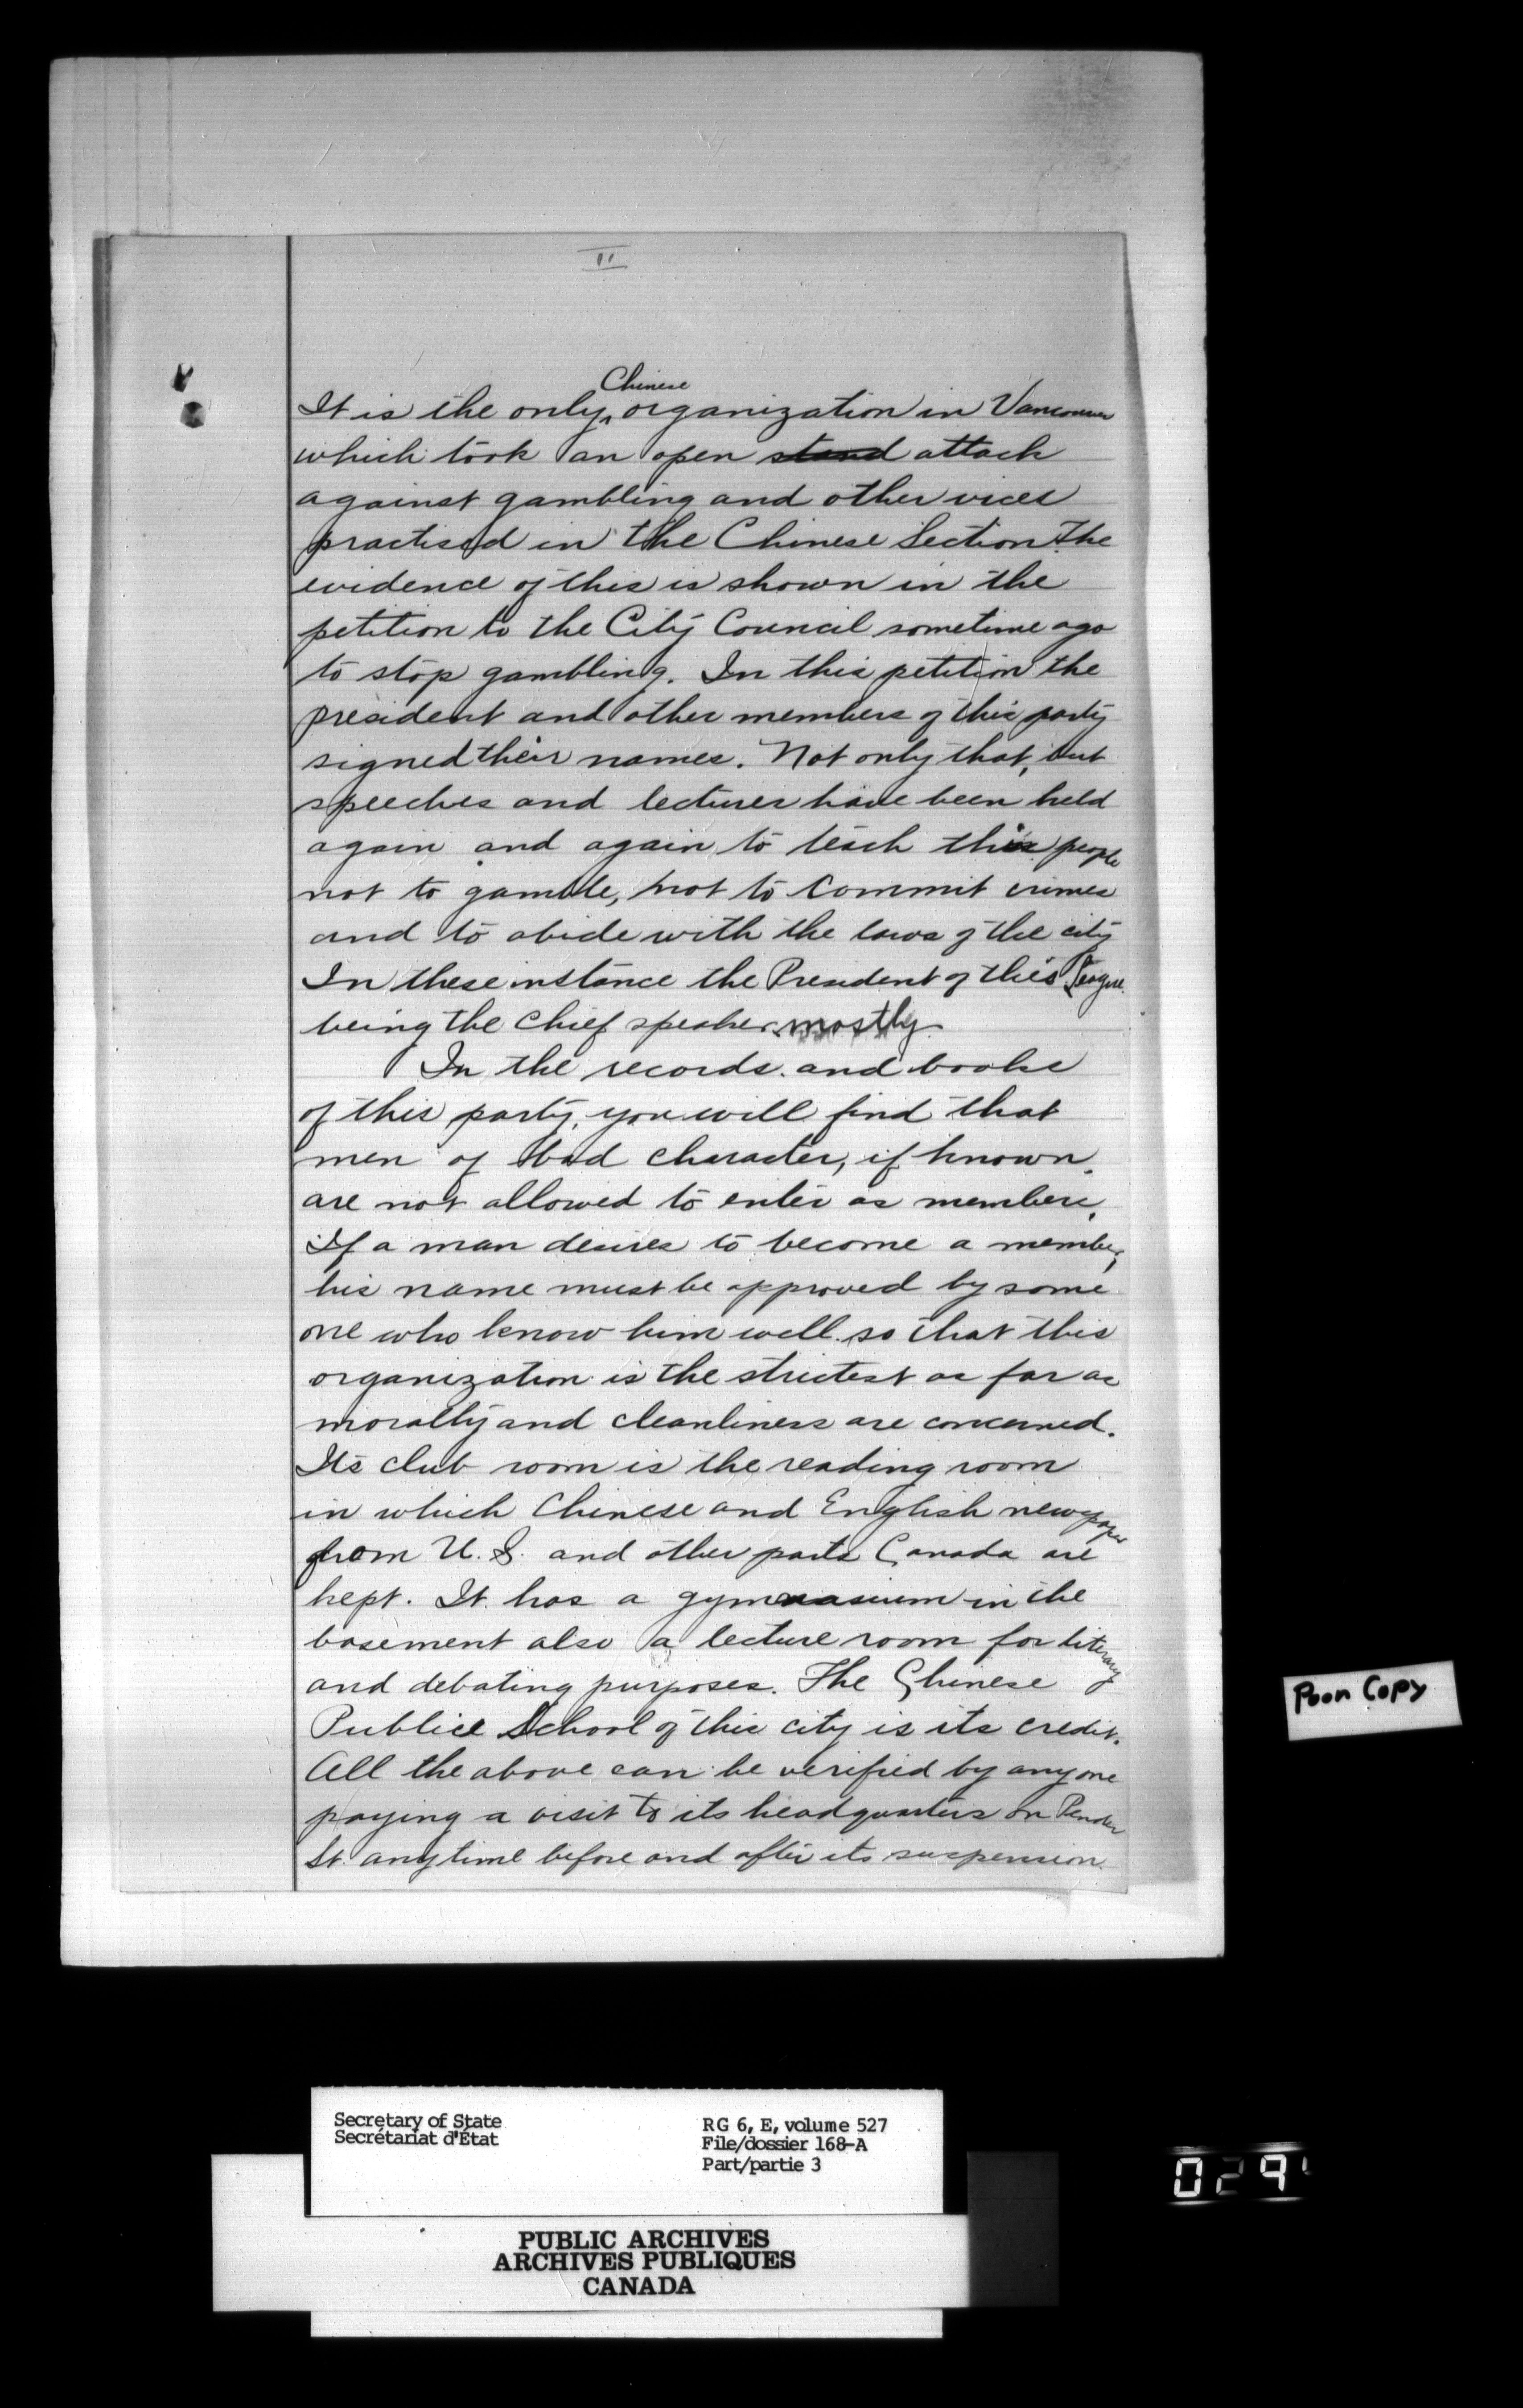 II
Chinese
It is the only organization in Vancouver
which took an open stand attack
against gambling and other vices
practised in the Chinese Section. The
evidence of this is shown in the
petition to the City Council sometime ago
to stop gambling. In this petition the
president and other members of this party
signed their names. Not only that, but
speeches and lectures have been held
again and again to teach this people
not to gamble, not to commit crimes
and to abide with the laws of the city
In these instance the President of this League
being the chief speaker mostly.
In the records and books
of this party, you will find that
men of bad character, if known,
are not allowed to enter as members.
If a man desires to become a member,
his name must be approved by some
one who know him well. so that this
organization is the strictest as far as
morally and cleanliness are concerned.
Its club room is the reading room
in which Chinese and English newspaper
from U.S. and other parts Canada are
kept. It has a gymnasium in the
basement also a lecture room for literary
and debating purposes. The Chinese
Public School of this city is its credit.
All the above can be verified by anyone
paying a visit to its headquarters on Pender
St. anytime before and after its suspension.
Poor Copy
Secretary of State
Secrétariat d'État
RG 6, E, volume 527
File/dossier 168-A
Part/partie 3
029
PUBLIC ARCHIVES
ARCHIVES PUBLIQUES
CANADA